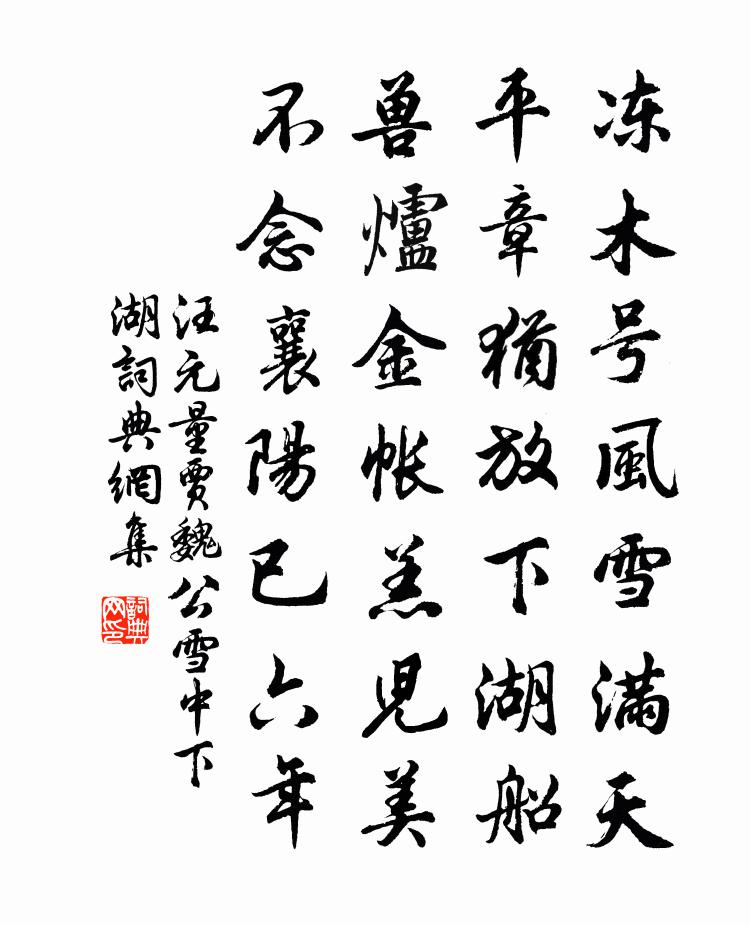 冻木号風雪满天
平章猶放下湖船
兽爐金帐羔児美
不念襄陽已六年
汪元量賈魏公雪中下
湖詞典網集
詞典网印